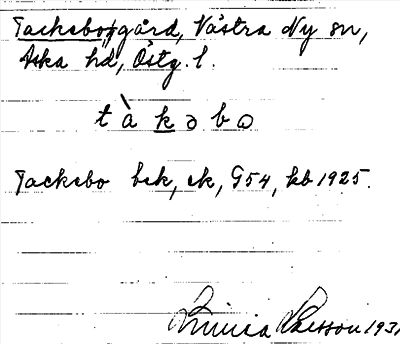 Tackebo, gård, Västra Ny sn,
Aska hd, Östg. l.
tàkəbo
Tackebo bsk, ek, G54, kb 1925.
1931